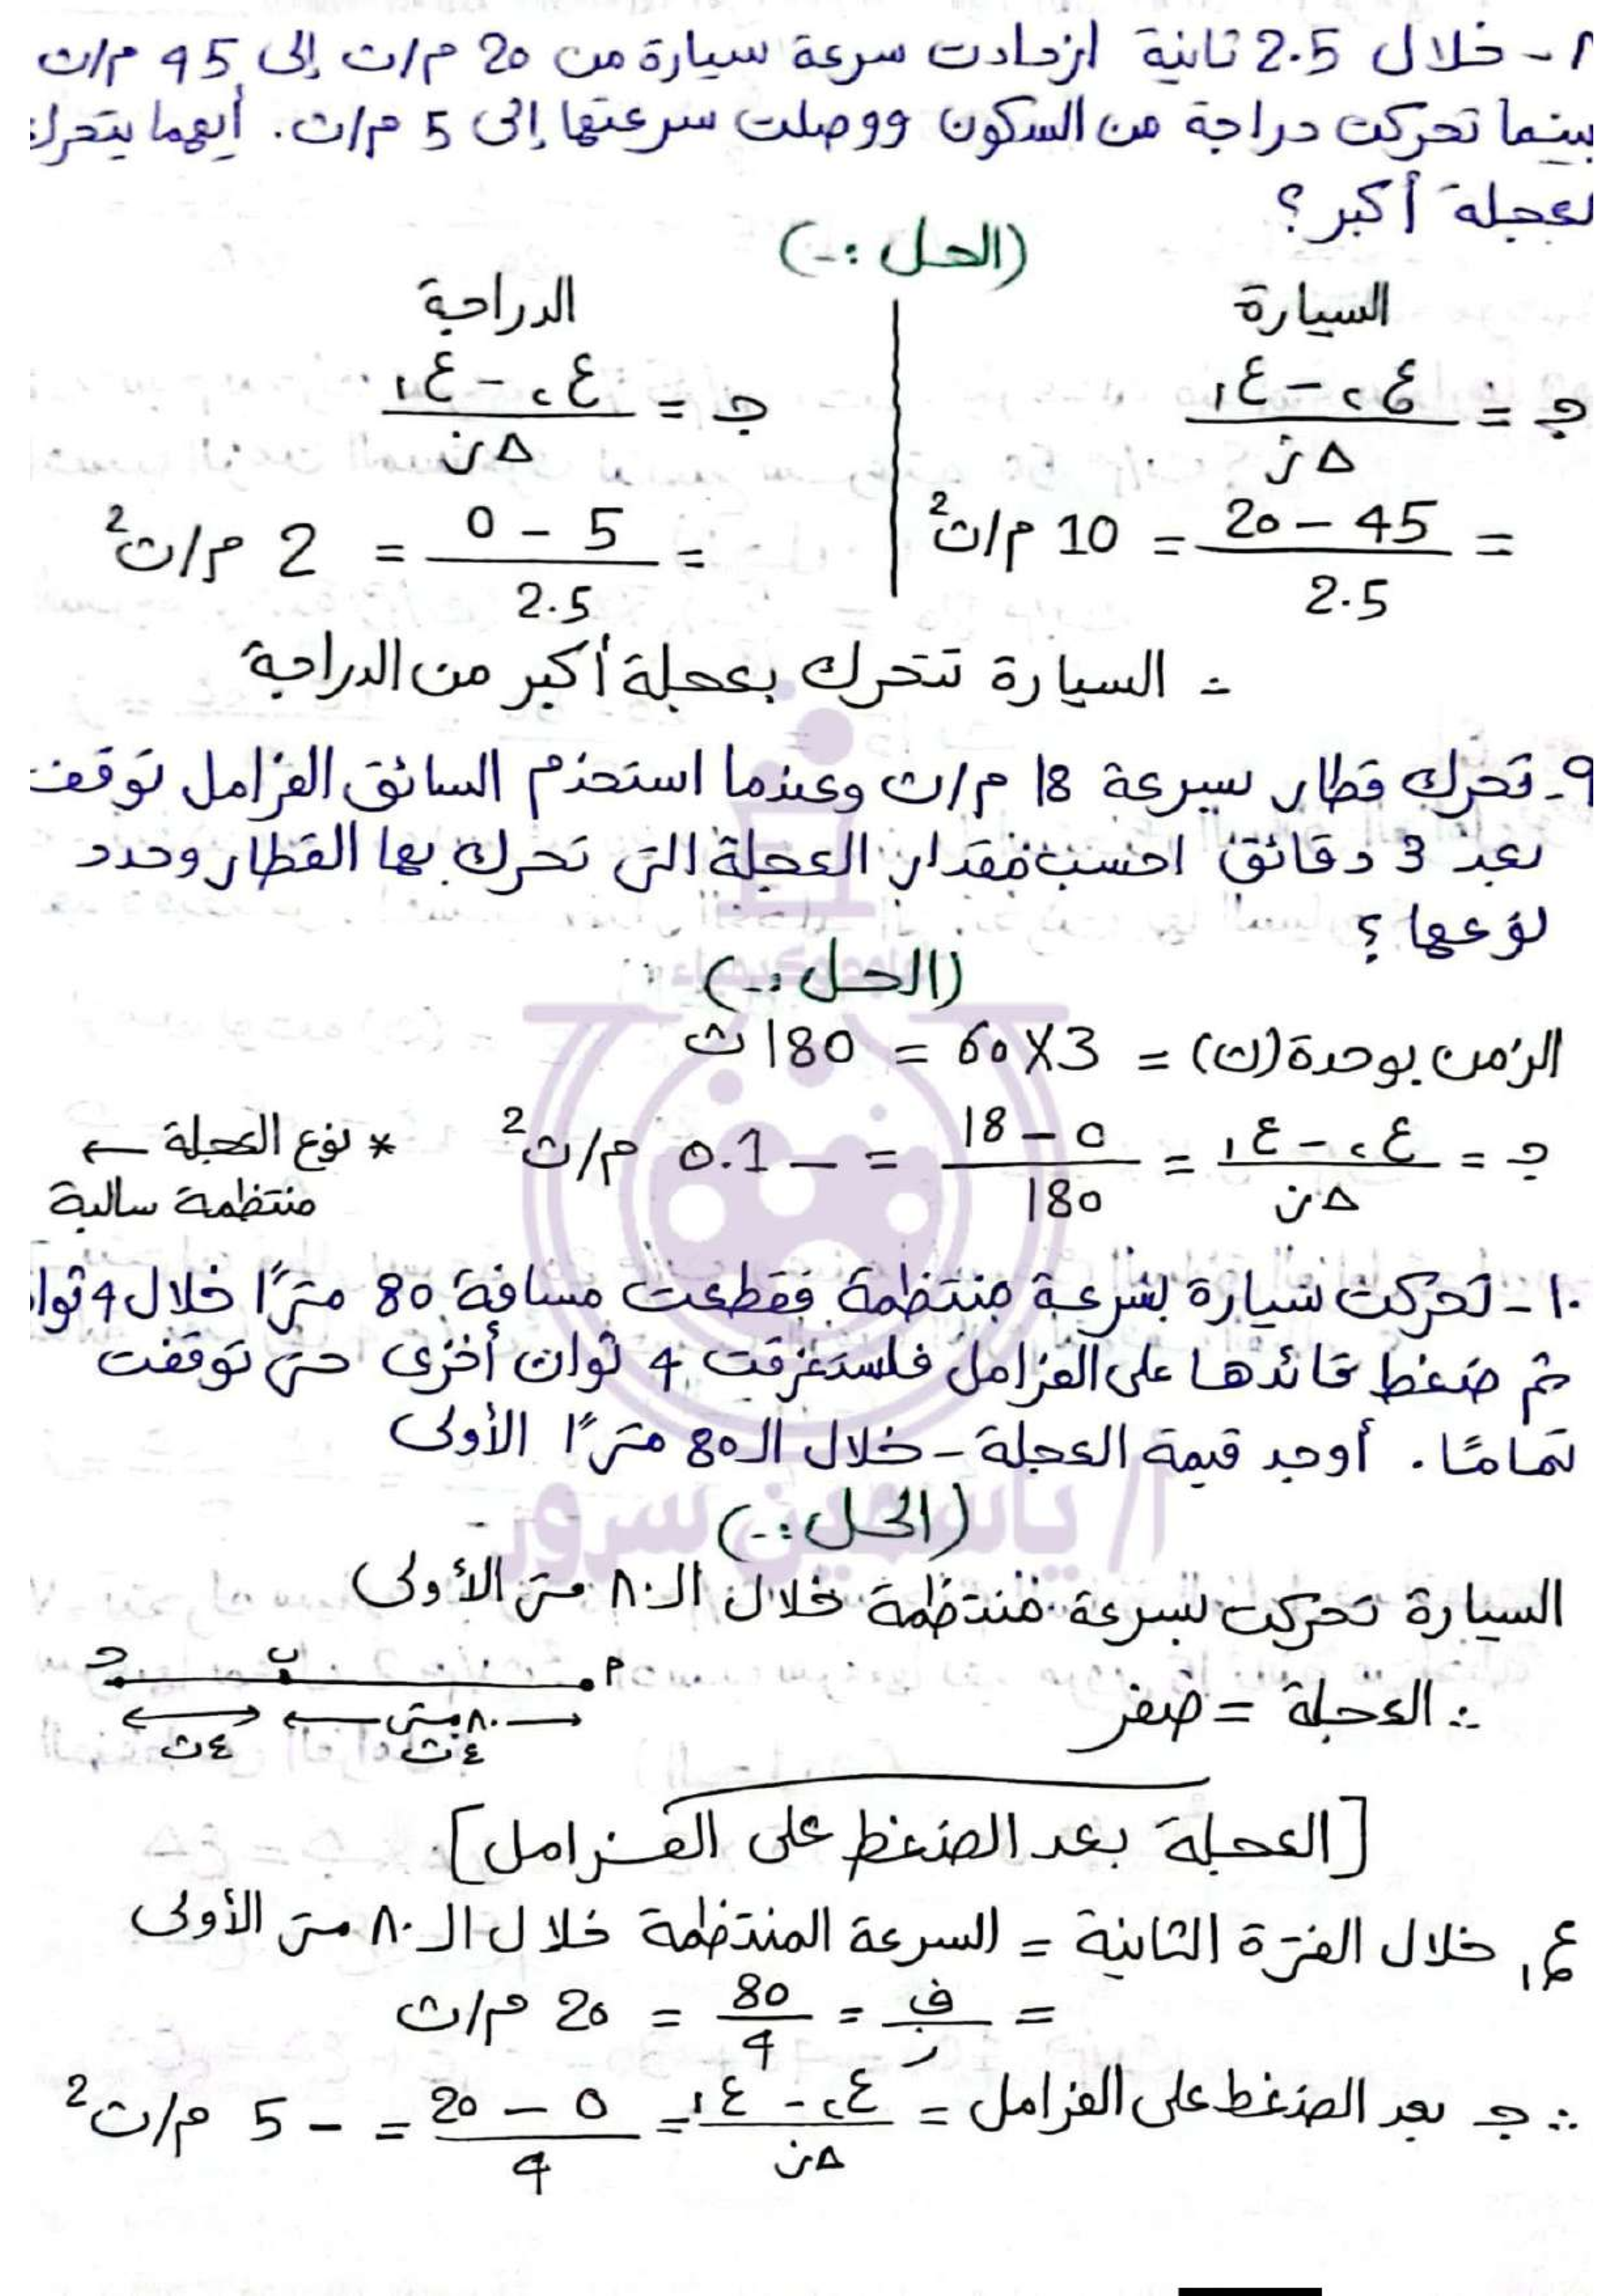 ٨- خلال 2.5 ثانية ازدادت سرعة سيارة من 20 م/ث إلى 45 م/ث
بينما تحركت دراجة من السكون ووصلت سرعتها إلى 5 م/ث. أيهما يتحرك
بعجلة أكبر؟
(الحل :-)
السيارة
جـ = ع٢ - ع١ / Δز
= 45 - 20 / 2.5 = 10 م/ث2
الدراجة
جـ = ع٢ - ع١ / Δز
= 5 - 0 / 2.5 = 2 م/ث2
∴ السيارة تتحرك بعجلة أكبر من الدراجة
٩- تحرك قطار بسرعة 18 م/ث وعندما استخدم السائق الفرامل توقف
بعد 3 دقائق احسب مقدار العجلة التى تحرك بها القطار وحدد
نوعها ؟
(الحل :-)
الزمن بوحدة (ث) = 3 X 60 = 180 ث
جـ = ع٢ - ع١ / Δز = 0 - 18 / 180 = - 0.1 م/ث2
* نوع العجلة ←
منتظمة سالبة
١٠- تحركت سيارة بسرعة منتظمة فقطعت مسافة 80 مترًا خلال 4 ثوا
ثم ضغط قائدها على الفرامل فاستغرقت 4 ثوان أخرى حتى توقفت
تمامًا. أوجد قيمة العجلة - خلال الـ 80 مترًا الأولى
(الحل :-)
أ/ ياسمين سرور
السيارة تحركت بسرعة منتظمة خلال الـ ٨٠ متر الأولى
∴ العجلة = صفر
أ ب جـ
٨٠ متر
٤ث ٤ث
[العجلة بعد الضغط على الفرامل]
ع١ خلال الفترة الثانية = السرعة المنتظمة خلال الـ ٨٠ متر الأولى
= ف / ز = 80 / 4 = 20 م/ث
∴ جـ بعد الضغط على الفرامل = ع٢ - ع١ / Δز = 0 - 20 / 4 = - 5 م/ث2